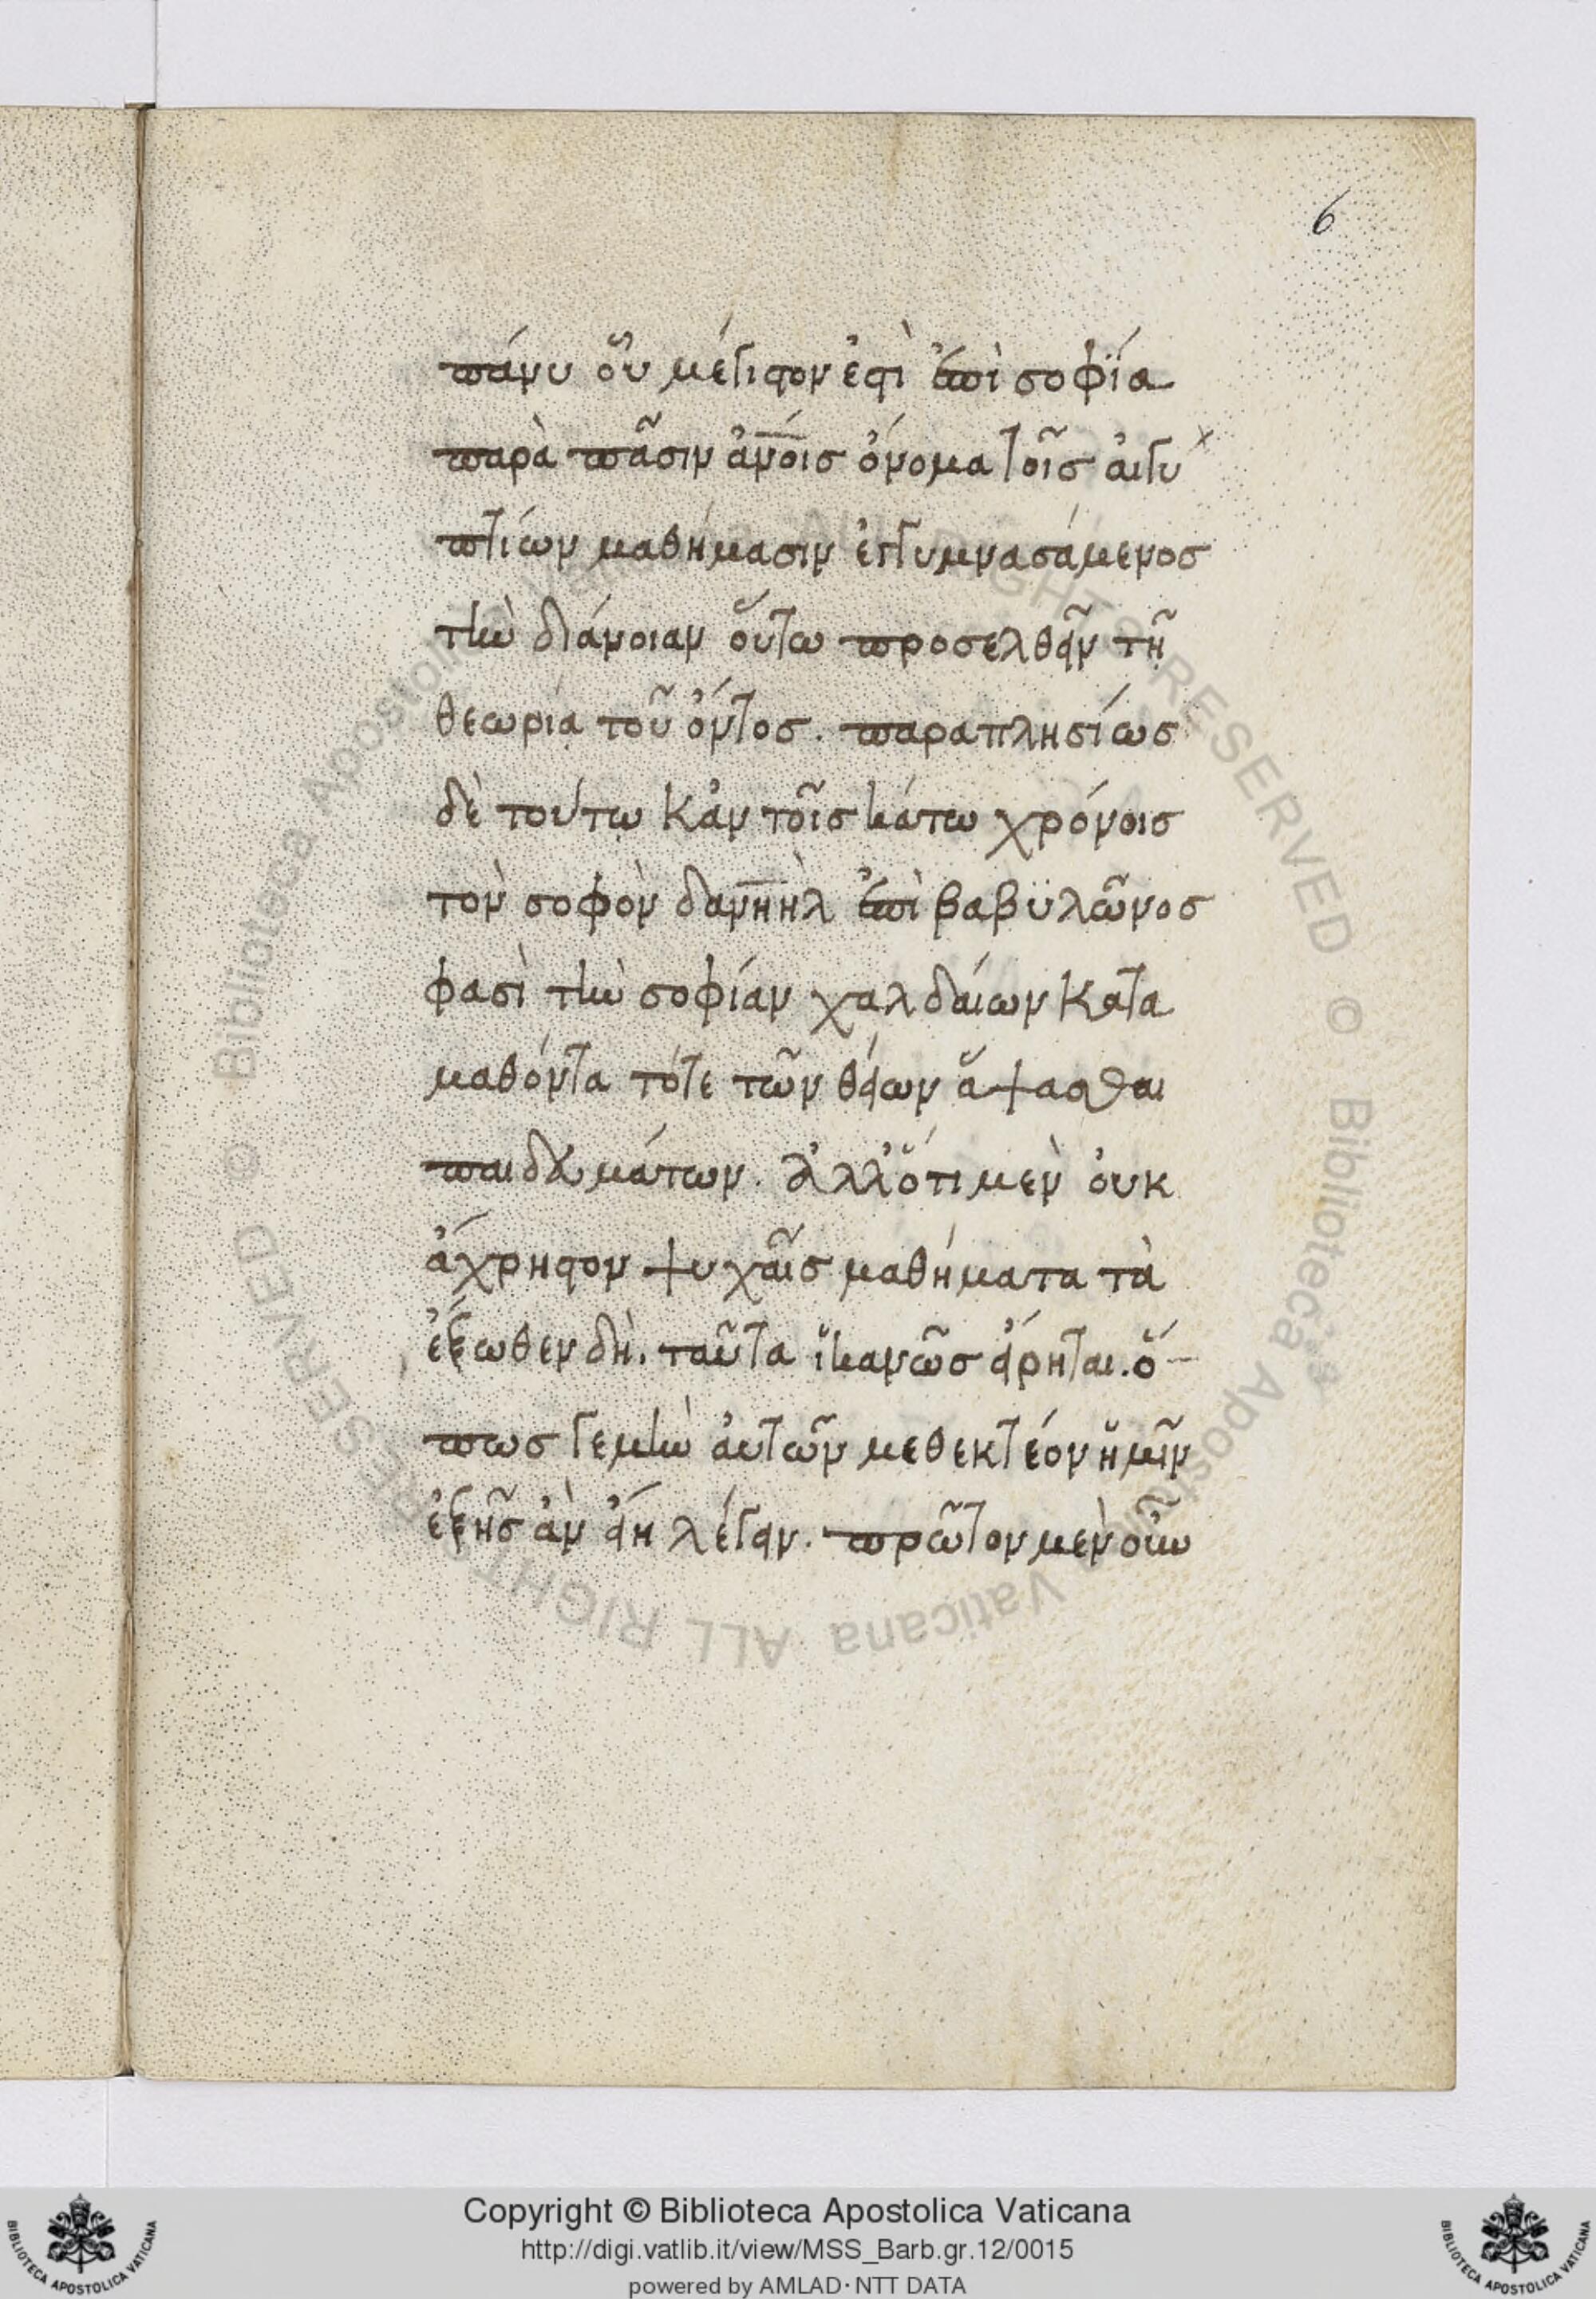 6
πάνυ οὗ μέγιστον ἐστὶ ἐπὶ σοφΐα
παρὰ πᾶσιν ἀν̅ο̅ι̅ς ὄνομα τοῖς ἀιγυ
πτίων μαθήμασιν ἐγγυμνασάμενος
τὴν διάνοιαν οὕτω προσελθεῖν τῇ
θεωρίᾳ τοῦ ὄντος. παραπλησίως
δὲ τούτῳ κἀν τοῖς κάτω χρόνοις
τὸν σοφὸν δανιὴλ ἐπὶ βαβϋλῶνος
φασὶ τὴν σοφίαν χαλδαίων κατα
μαθόντα τότε τῶν θείων ἅψασθαι
παιδευμάτων. ἀλλ' ὅτι μὲν ὀυκ
ἄχρηστον ψυχαῖς μαθήματα τὰ
ἔξωθεν δὴ. ταῦτα ἱκανῶς εἴρηται. ὅ-
πως γε μὴν ἀυτῶν μεθεκτέον ἡμῖν
ἑξῆς ἀν εἴη λέγειν. πρῶτον μὲν οὖν
Copyright © Biblioteca Apostolica Vaticana
http://digi.vatlib.it/view/MSS_Barb.gr.12/0015
powered by AMLAD·NTT DATA
BIBLIOTECA APOSTOLICA VATICANA
BIBLIOTECA APOSTOLICA VATICANA
© Biblioteca Apostolica Vaticana ALL RIGHTS RESERVED